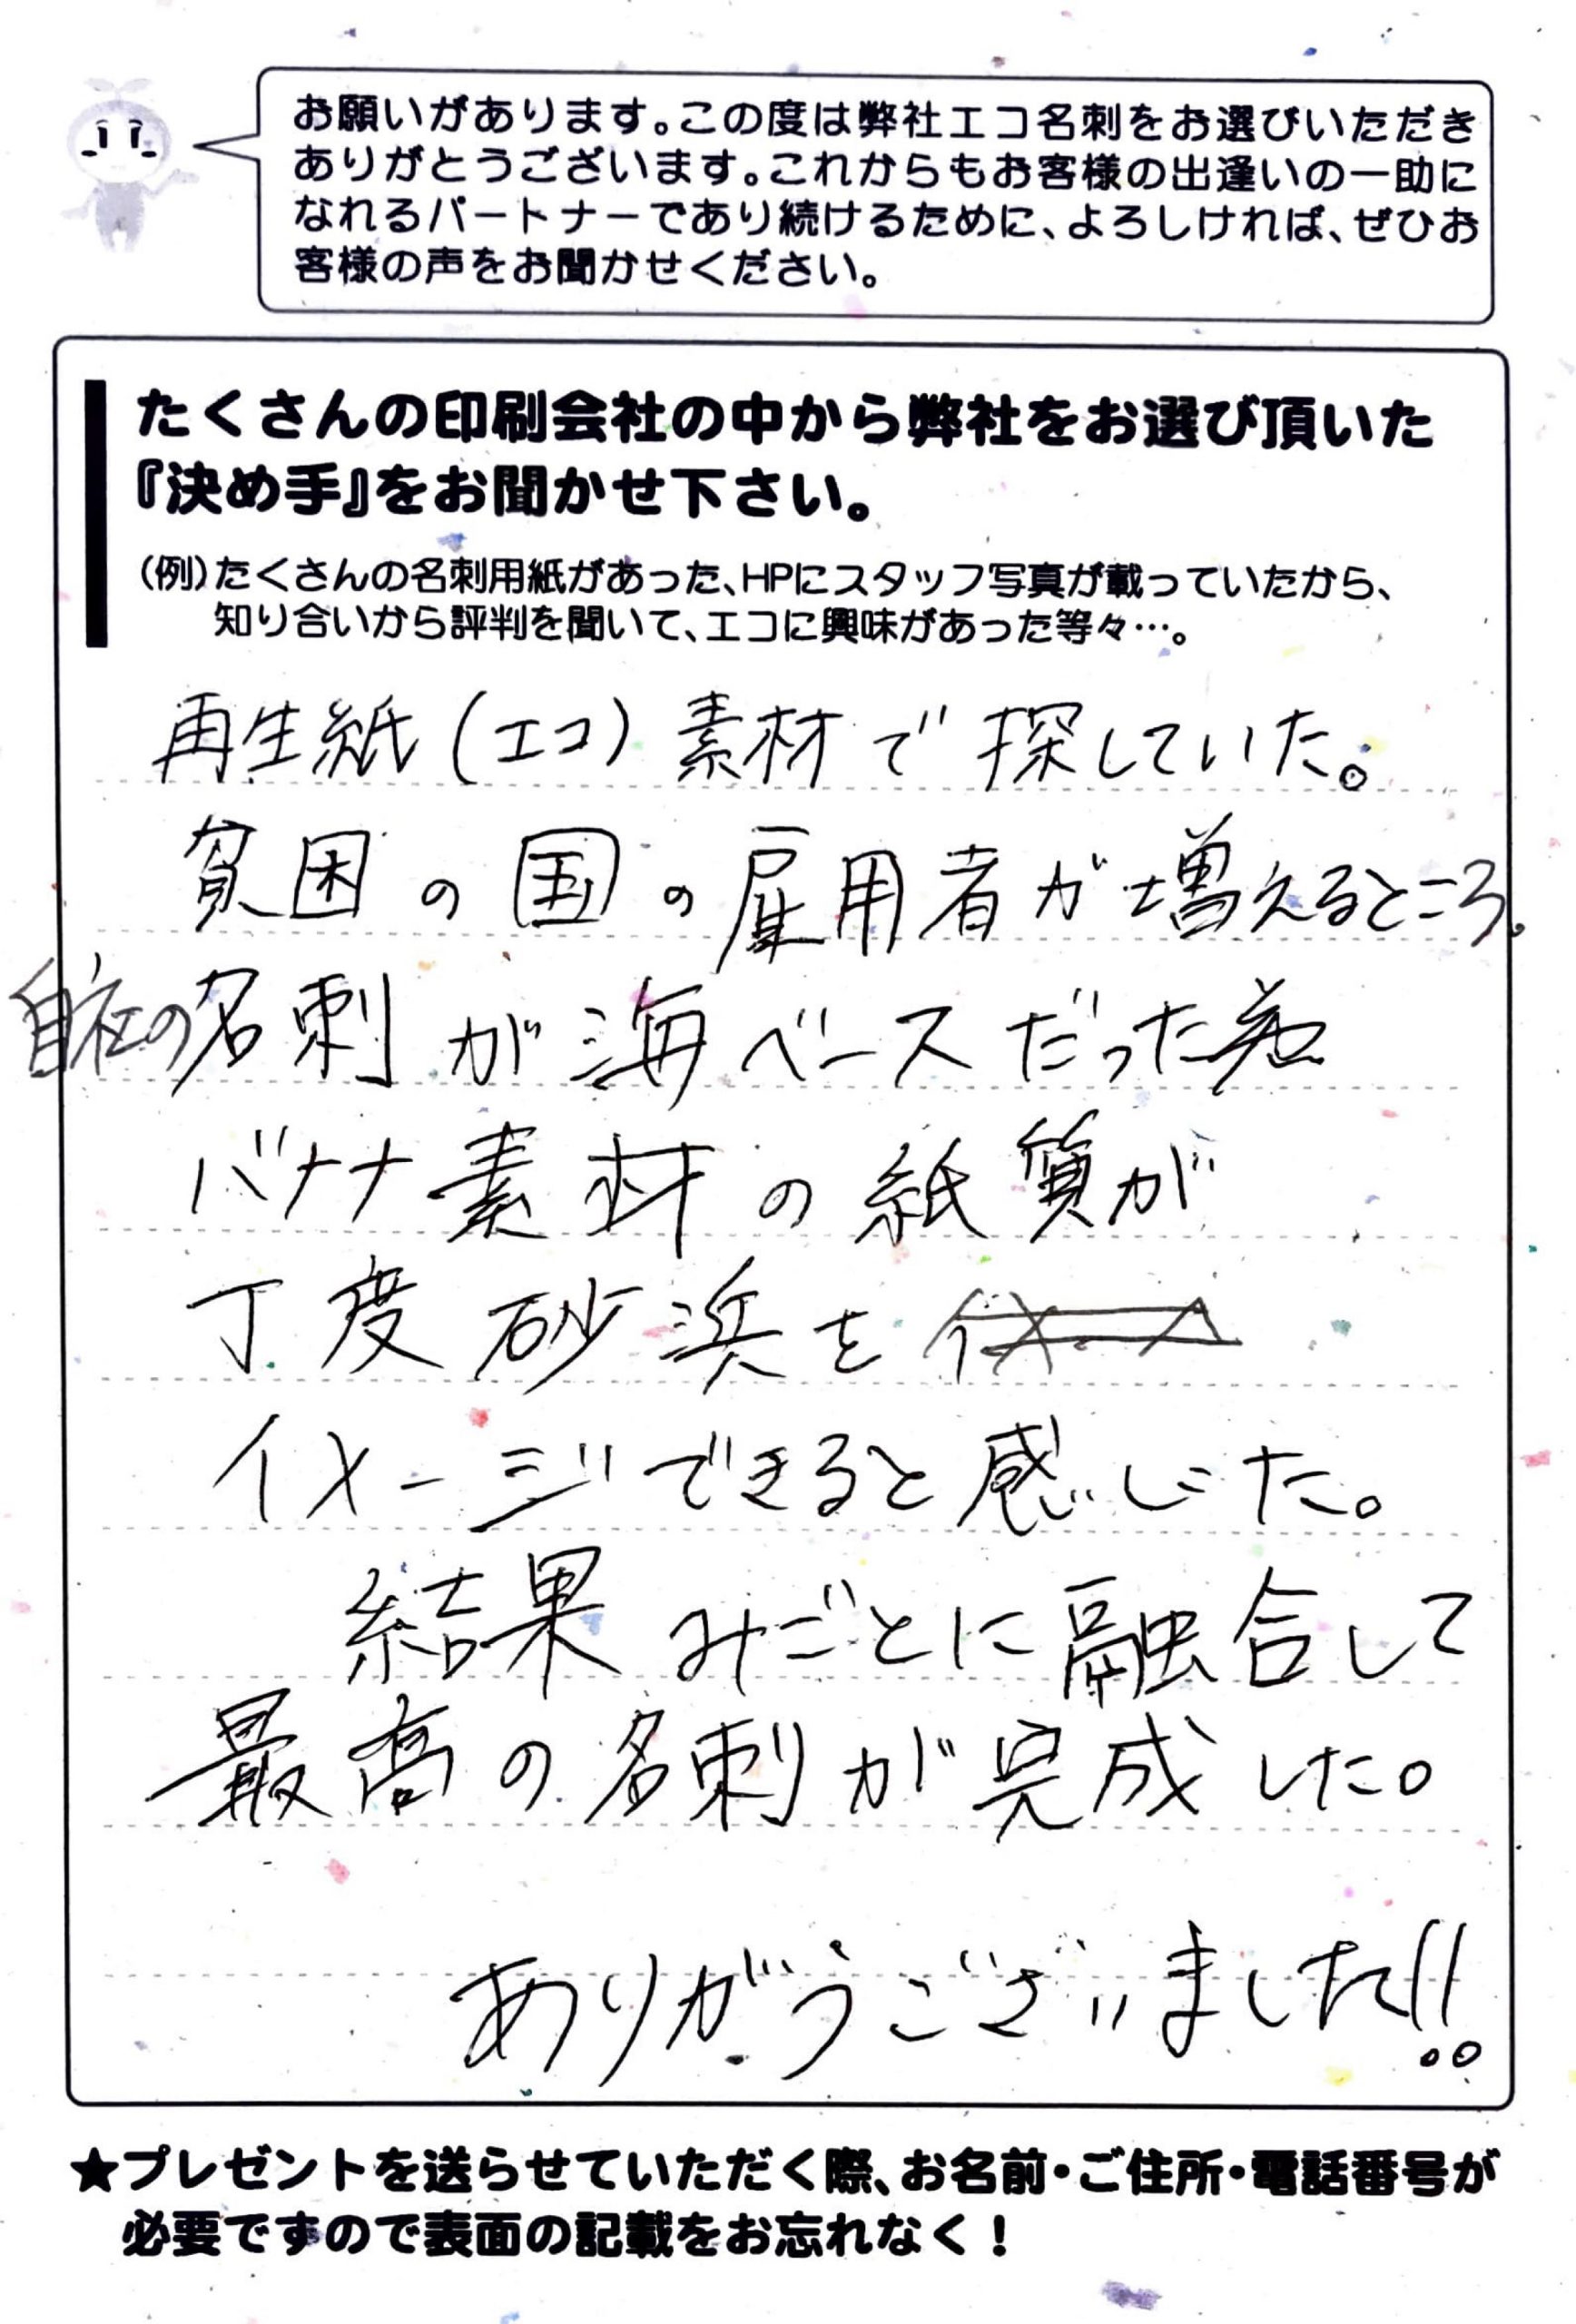 お願いがあります。この度は弊社エコ名刺をお選びいただき
ありがとうございます。これからもお客様の出逢いの一助に
なれるパートナーであり続けるために、よろしければ、ぜひお
客様の声をお聞かせください。
たくさんの印刷会社の中から弊社をお選び頂いた
『決め手』をお聞かせ下さい。
(例)たくさんの名刺用紙があった、HPにスタッフ写真が載っていたから、
知り合いから評判を聞いて、エコに興味があった等々…。
再生紙(エコ)素材で探していた。
貧困の国の雇用者が増えるところ。
自社の名刺が海ベースだった為
バナナ素材の紙質が
丁度砂浜を
イメージできると感じた。
結果みごとに融合して
最高の名刺が完成した。
ありがうございました!!
★プレゼントを送らせていただく際、お名前・ご住所・電話番号が
必要ですので表面の記載をお忘れなく!